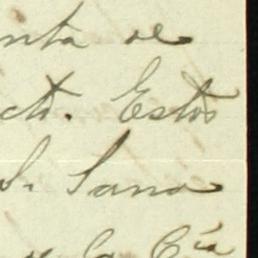 nta de
cto. Estos
S. Sana
de la Cía